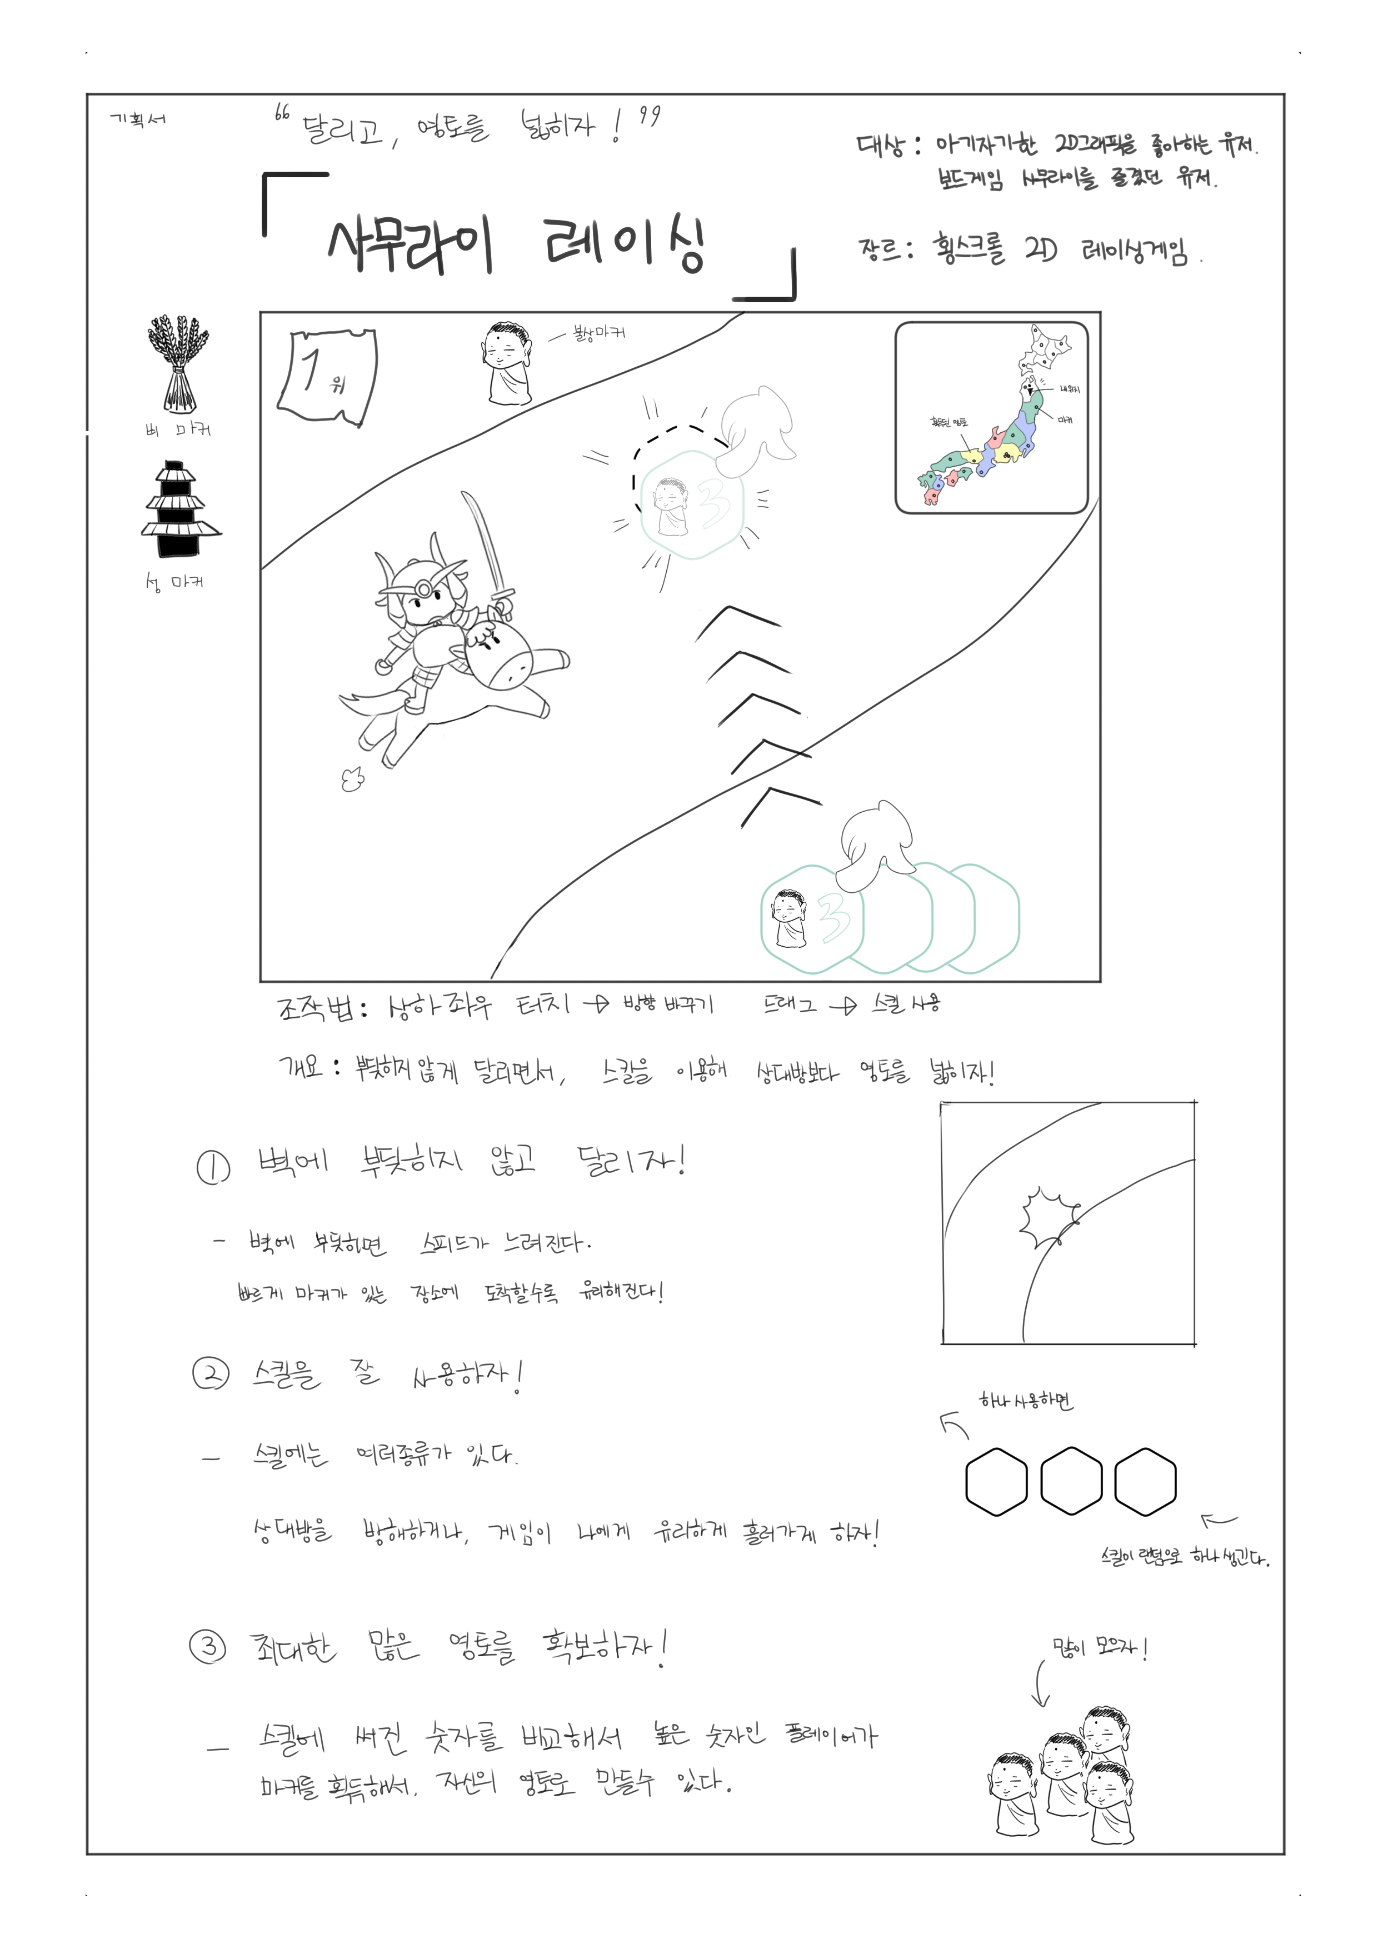 기획서
“달리고, 영토를 넓히자!”
대상 : 아기자기한 2D그래픽을 좋아하는 유저.
보드게임 사무라이를 즐겼던 유저.
「사무라이 레이싱」
장르 : 횡스크롤 2D 레이싱게임.
1위
불상마커
내위치
마커
획득된 영토
벼 마커
성 마커
3
3
조작법 : 상하좌우 터치 → 방향 바꾸기 드래그 → 스킬 사용
개요 : 부딪히지 않게 달리면서, 스킬을 이용해 상대방보다 영토를 넓히자!
① 벽에 부딪히지 않고 달리자!
- 벽에 부딪히면 스피드가 느려진다.
빠르게 마커가 있는 장소에 도착할수록 유리해진다!
② 스킬을 잘 사용하자!
- 스킬에는 여러종류가 있다.
상대방을 방해하거나, 게임이 나에게 유리하게 흘러가게 하자!
하나 사용하면
스킬이 랜덤으로 하나 생긴다.
③ 최대한 많은 영토를 확보하자!
- 스킬에 써진 숫자를 비교해서 높은 숫자인 플레이어가
마커를 획득해서, 자신의 영토로 만들수 있다.
많이 모으자!